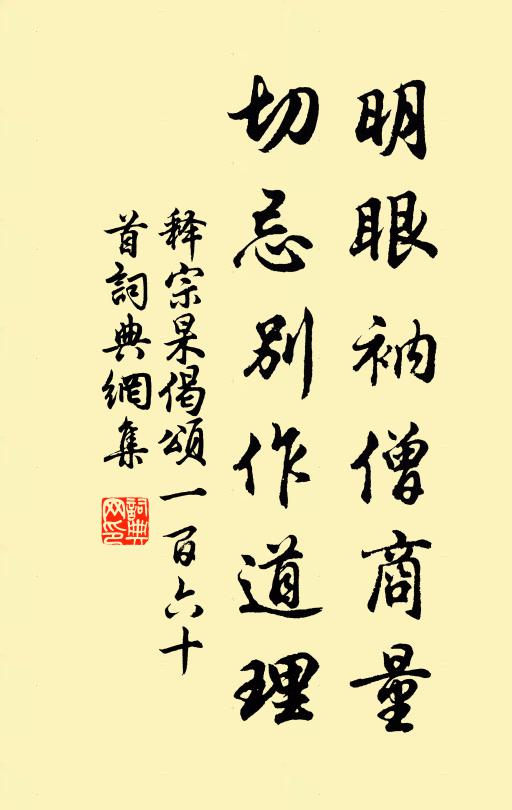 明眼衲僧商量
切忌别作道理
释宗杲偈頌一百六十
首詞典網集
詞典
网印